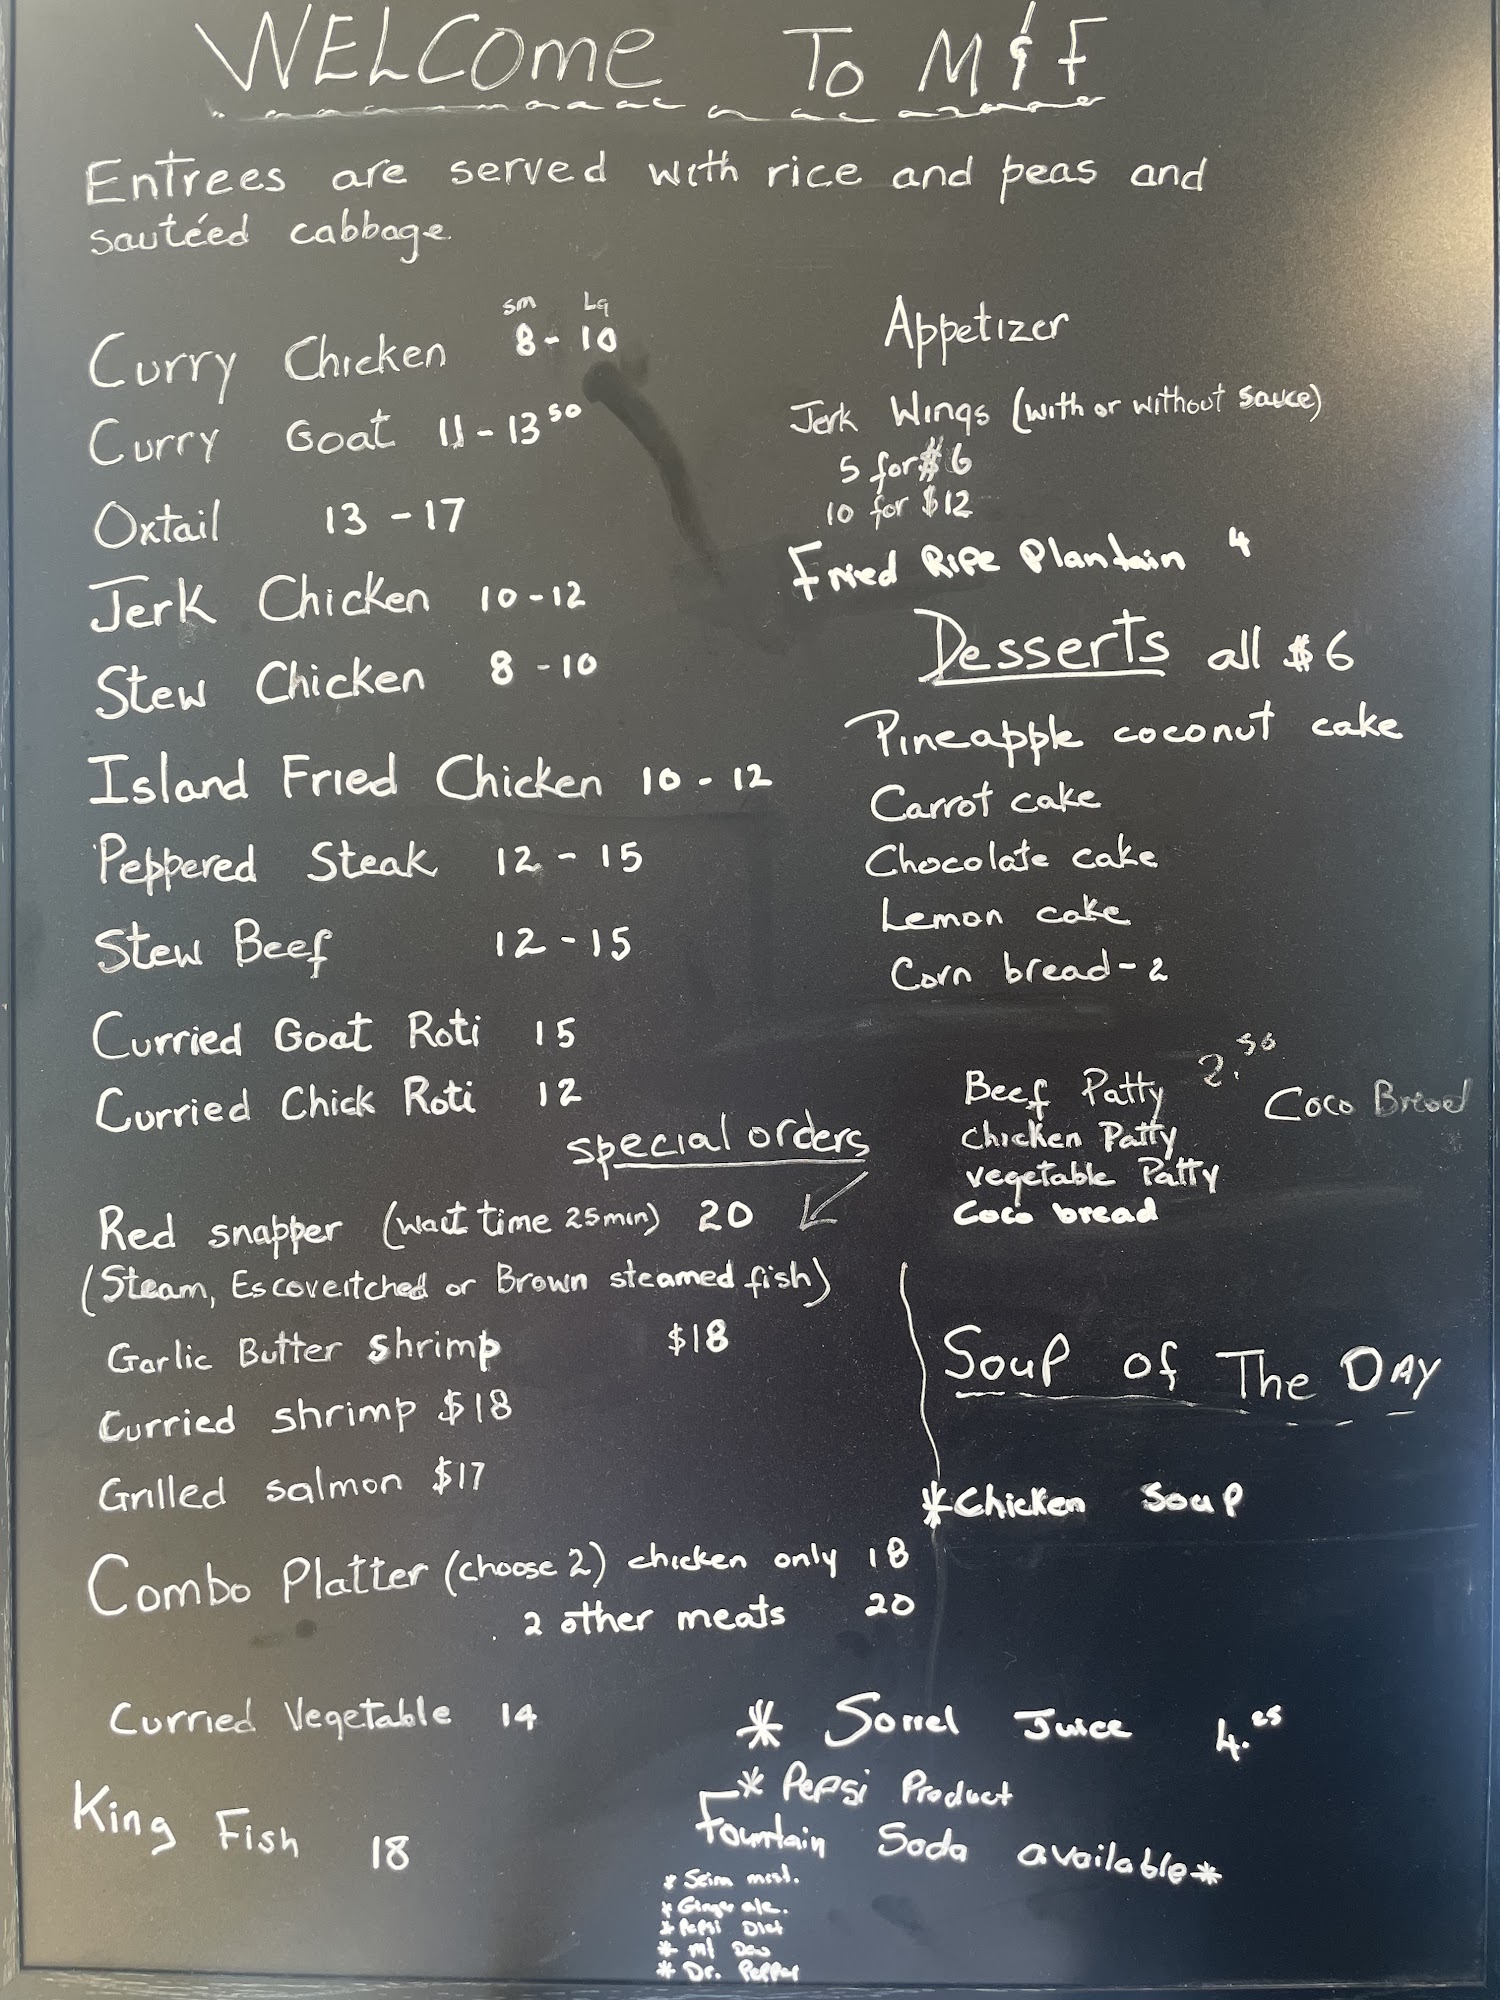 WELCOME To M & F
Entrees are served with rice and peas and
sautéed cabbage.
sm Lg
Curry Chicken 8 - 10
Curry Goat 11 - 13 50
Oxtail 13 - 17
Jerk Chicken 10 - 12
Stew Chicken 8 - 10
Island Fried Chicken 10 - 12
Peppered Steak 12 - 15
Stew Beef 12 - 15
Curried Goat Roti 15
Curried Chick Roti 12
special orders
Red snapper (wait time 25min) 20
(Steam, Escoveitched or Brown steamed fish)
Garlic Butter shrimp $18
Curried shrimp $18
Grilled salmon $17
Combo Platter (choose 2) chicken only 18
2 other meats 20
Curried Vegetable 14
King Fish 18
Appetizer
Jerk Wings (with or without sauce)
5 for $6
10 for $12
Fried Ripe Plantain 4
Desserts all $6
Pineapple coconut cake
Carrot cake
Chocolate cake
Lemon cake
Corn bread - 2
Beef Patty 2.50 Coco Bread
Chicken Patty
vegetable Patty
Coco bread
Soup of The DAY
*Chicken Soup
* Sorrel Juice 4.
* Pepsi Product
Fountain Soda available*
*
* Ginger ale.
* Pepsi Diet
* mt Dew
* Dr. Pepper